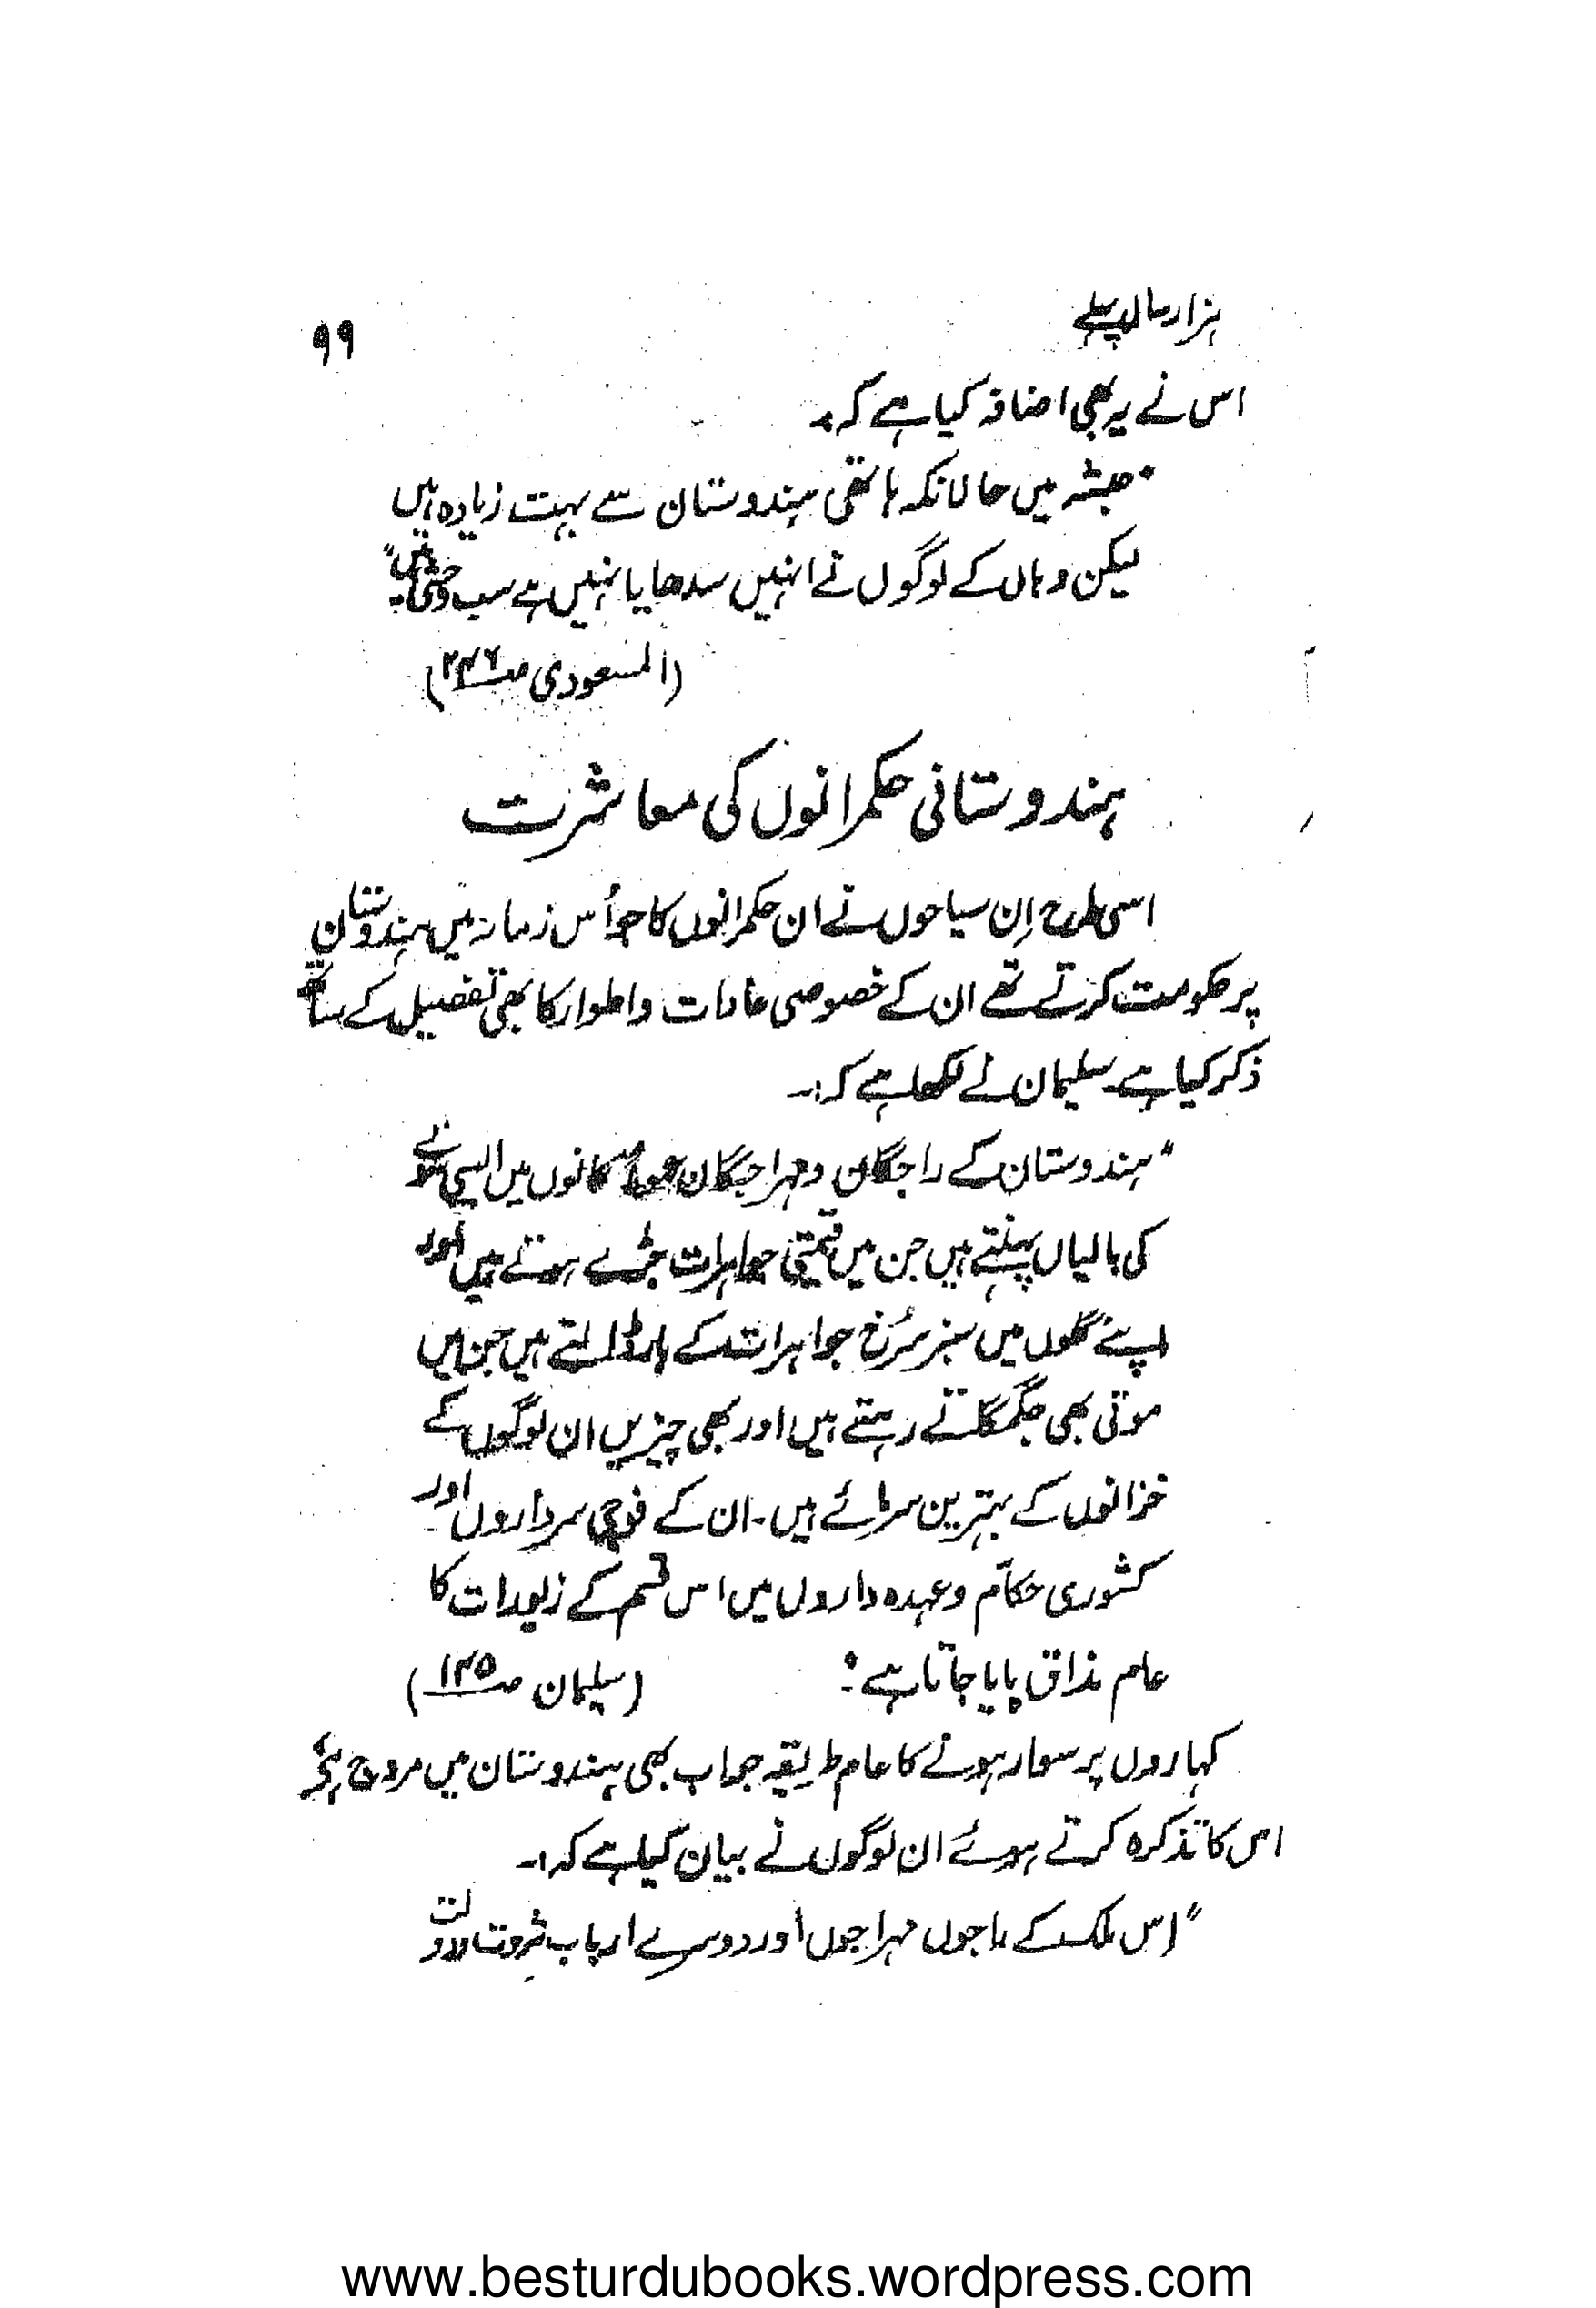 ہزار سال پہلے
۹۹
اس نے یہ بھی اضافہ کیا ہے کہ:۔
"حبشہ میں حالانکہ ہاتھی ہندوستان سے بہت زیادہ ہیں
لیکن وہاں کے لوگوں نے انہیں سدھایا نہیں ہے سب وحشی ہیں"
(المسعودی صـ)
ہندوستانی حکمرانوں کی معاشرت
اسی طرح اِن سیاحوں نے ان حکمرانوں کا جو اُس زمانہ میں ہندوستان
پر حکومت کرتے تھے ان کے خصوصی عادات واطوار کا بھی تفصیل کے ساتھ
ذکر کیا ہے۔ سلیمان نے لکھا ہے کہ:۔
"ہندوستان کے راجگان ومہراجگان عموماً کانوں میں ایسی سونے
کی بالیاں پہنتے ہیں جن میں قیمتی جواہرات جڑے ہوتے ہیں اور
اپنے گلوں میں سبز سُرخ جواہرات کے ہار ڈالتے ہیں جن میں
موتی بھی جگمگاتے رہتے ہیں اور بھی چیزیں ان لوگوں کے
خزانوں کے بہترین سرمائے ہیں۔ ان کے فوجی سرداروں اور
کشوری حکام وعہدہ داروں میں اس قسم کے زیورات کا
عام مذاق پایا جاتا ہے" (سلیمان صـ۱۴۵)
کہاروں پر سوار ہونے کا عام طریقہ جو اب بھی ہندوستان میں مروج ہے
اس کا تذکرہ کرتے ہوئے ان لوگوں نے بیان کیا ہے کہ:۔
"اس ملک کے راجوں مہراجوں اور دوسرے ارباب ثروت ودولت
www.besturdubooks.wordpress.com